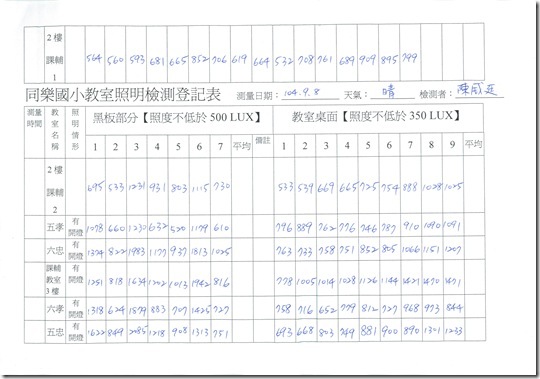 2樓 課輔 1 564 560 593 681 665 852 706 619 664 532 708 761 689 909 895 799
同樂國小教室照明檢測登記表 測量日期：104.9.8 天氣：晴 檢測者：
測量時間 教室名稱 照明情形 黑板部分【照度不低於 500 LUX】 備註 教室桌面【照度不低於 350 LUX】
1 2 3 4 5 6 7 平均 1 2 3 4 5 6 7 8 9 平均
2樓 課輔 2 695 533 1231 931 803 1115 730 533 539 669 665 725 754 888 1028 1025
五孝 有開燈 1078 660 1230 632 520 1179 610 796 889 762 776 746 787 910 1090 1091
六忠 有開燈 1324 822 1983 1177 937 1813 1025 763 733 758 751 852 805 1066 1151 1207
課輔教室3樓 有開燈 1251 818 1634 1202 1013 1942 816 778 1005 1014 1028 1126 1144 1421 1470 1471
六孝 有開燈 1318 624 1879 883 707 1425 727 758 716 652 779 812 727 968 973 844
五忠 有開燈 1622 849 2085 1218 908 1313 751 693 668 803 749 881 900 890 1301 1233